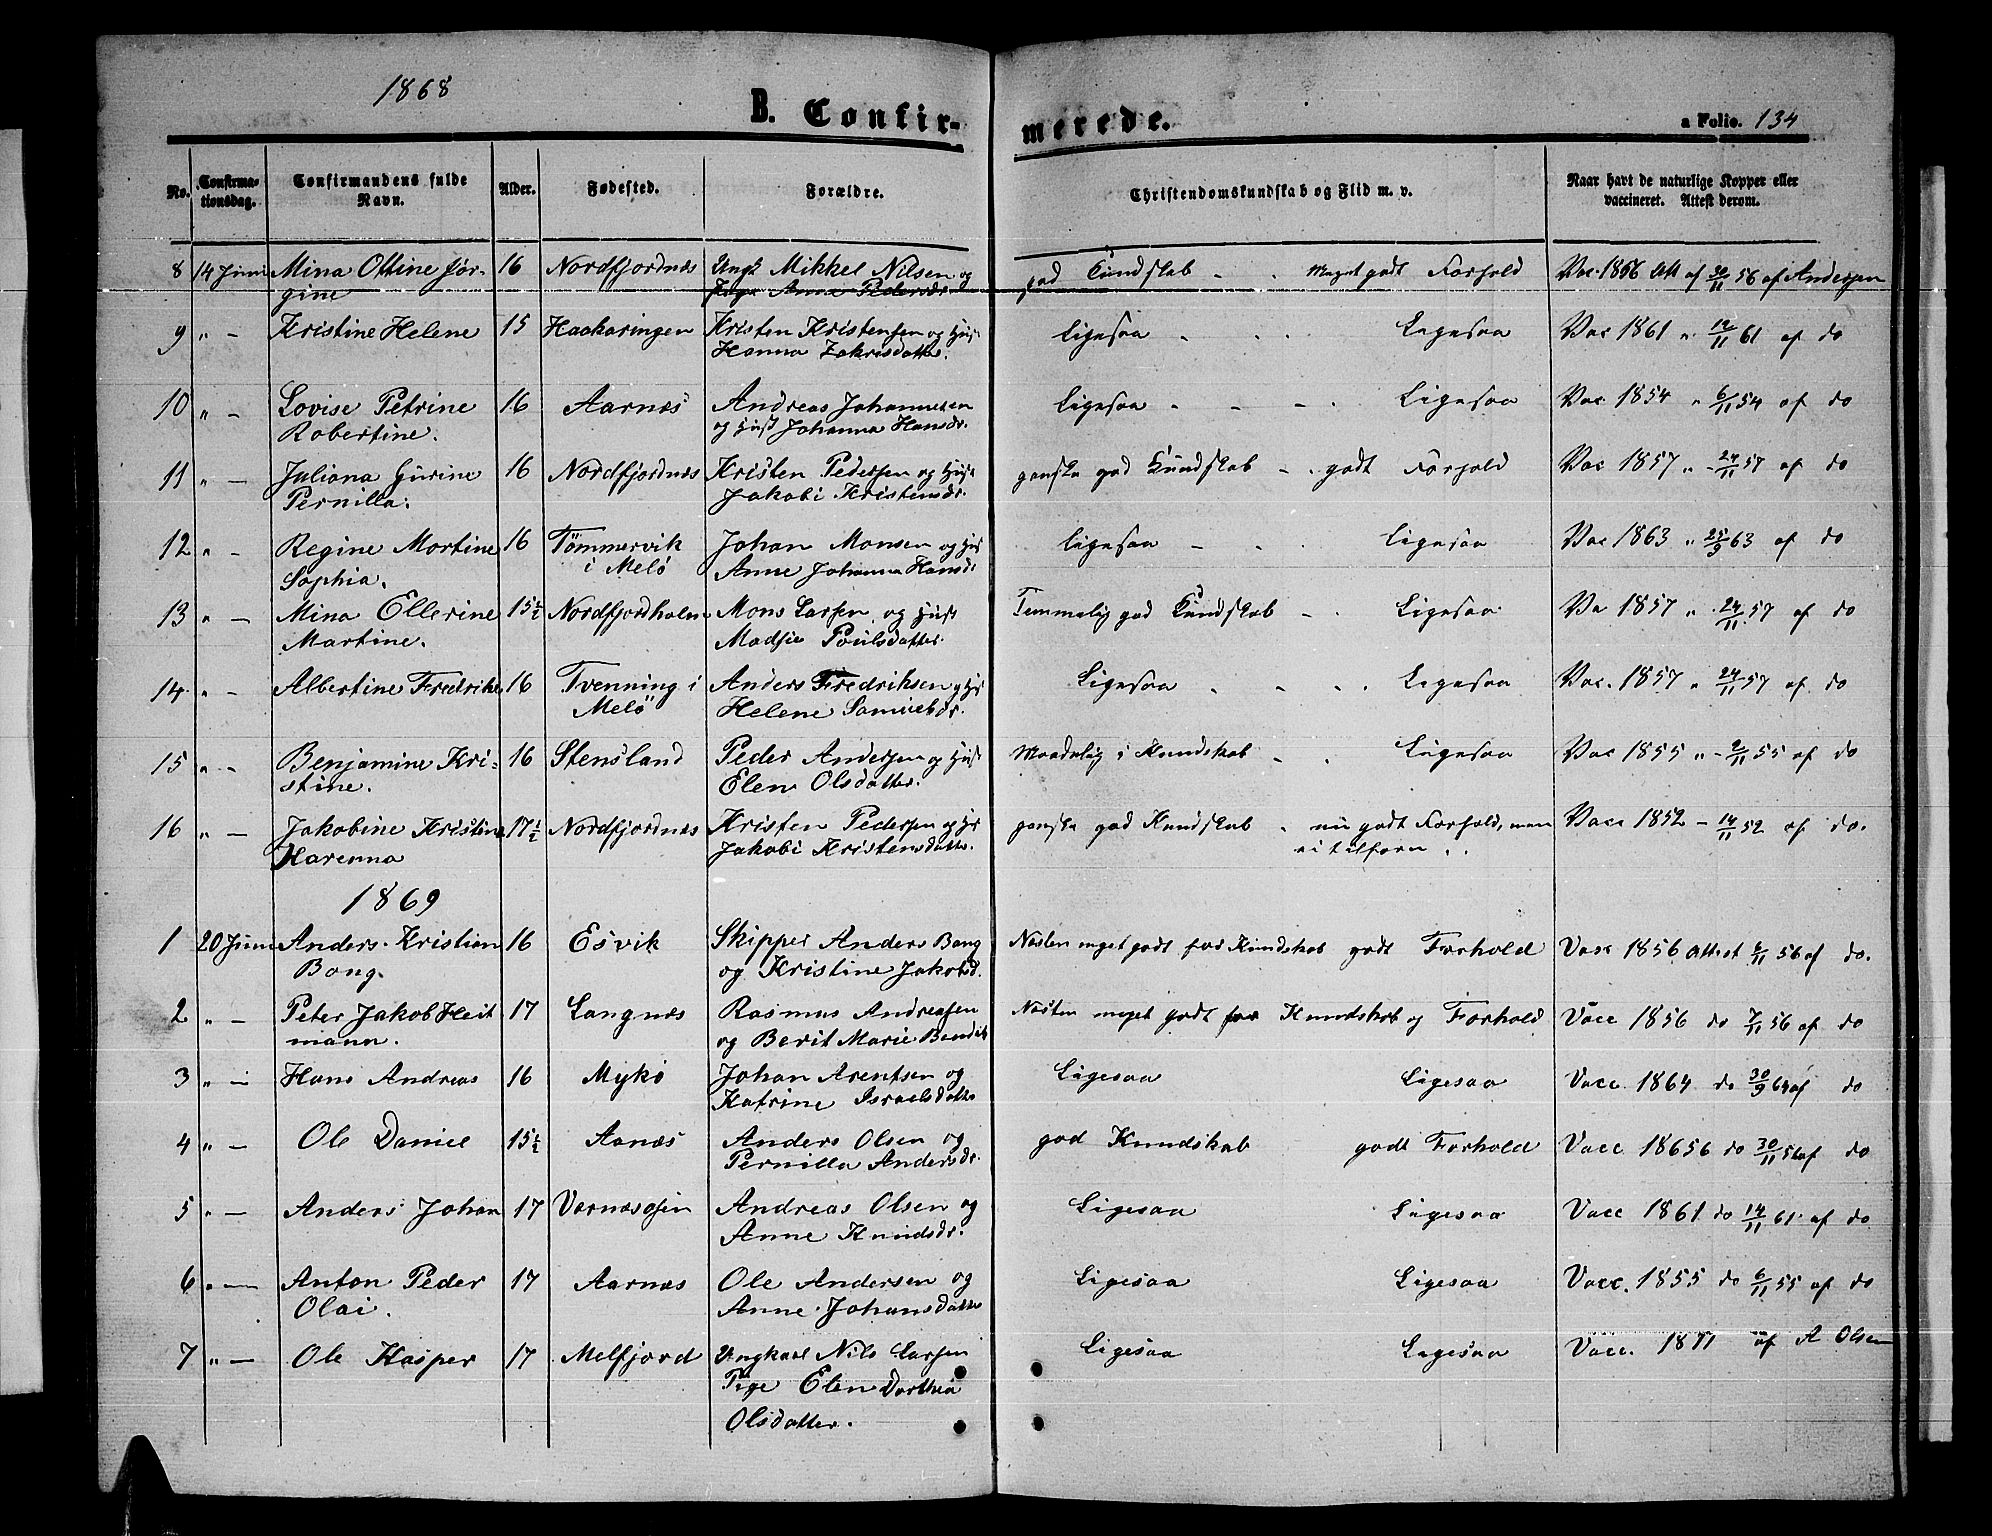 1868
B. Confir- merede. a Folio. 134
No. Confirma- Confirmandens fulde Alder. Fødested. Forældre. Christendomskundskab og Flid m. v. Naar havt de naturlige Kopper eller
tionsdag. Navn. vaccineret. Attest derom.
8 14 Juni Mina Ottine Jør- 16 Nordfjordnæs Ungk Mikkel Nilsen og god Kundskab - - Meget godt Forhold Vac. 1856 Att af 30/11 56 af Andersen
gine Pige Anna Pedersdr
9 " - Kristine Helene 15 Haakaringen Kristen Kristensen og Hust. Ligesaa - - - Ligesaa Vac 1861 " 12/11 61 af do
Hanna Zakrisdatter.
10 " - Lovise Petrine 16 Aarnæs Andreas Johannesen Ligesaa - - - - Ligesaa Vac 1854 " 6/11 54 af do
Robertine. og Hust Johanna Hansdr.
11 " - Juliana Gurine 16 Nordfjordnæs Kristen Pedersen og Hust ganske god Kundskab - - godt Forhold Vac 1857 " - 24/11 57 af do
Pernilla. Jakobi Kristensdr.
12 " - Regine Martine 16 Tømmervik Johan Monsen og Hust Ligesaa - - - Ligesaa Vac 1863 " 25/9 63 af do
Sophia. i Melø Anne Johanna Hansdr
13 " - Mina Ellerine 15½ Nordfjordholm Mons Larsen og Hust Temmelig god Kundskab - - Ligesaa Va 1857 " 24/11 57 af do
Martine. Madsie Poulsdatter.
14 " - Albertine Fredrike 16 Tvenning i Anders Fredriksen og Hust Ligesaa - - - Ligesaa Vac. 1857 " 24/11 57 af do
Melø Helene Samuelsdr.
15 " - Benjamine Kri- 16 Stensland Peder Andersen og Hust Maadelig i Kundskab - - Ligesaa Vac 1855 " - 2/11 55 af do
stine. Elen Olsdatter.
16 " - Jakobine Kristine 17½ Nordfjordnæs Kristen Pedersen og Hust ganske god Kundskab - nu godt Forhold, men Vacc 1852 - 14/11 52 af do.
Harenna Jakobi Kristensdatter. ei tilforn . .
1869
1 20 Juni Anders Kristian 16 Esvik Skipper Anders Bang Næsten meget godt for Kundskab godt Forhold Vacc 1856 Attest 6/11 56 af do.
Bang. og Kristine Jakobsd.
2 " - Peter Jakob Heit 17 Langnæs Rasmus Andreasen Næsten meget godt for Kundskab og Forhold Vacc 1856 do 7/11 56 af do
mann. og Berit Marie Bendik
3 " - Hans Andreas 16 Mykø Johan Arentsen og Ligesaa Ligesaa Vacc 1864 do 30/9 64 af do
Katrine Israelsdatter
4 " - Ole Daniel 15½ Aanæs Anders Olsen og god Kundskab godt Forhold Vacc 18656 do 30/11 56 af do
Pernilla Andersdr.
5 " - Anders Johan 17 Værnæsøjen Andreas Olsen og Ligesaa Ligesaa Vacc 1861 do 14/11 61 af do
Anne Knudsdr.
6 " - Anton Peder 17 Aarnæs Ole Andersen og Ligesaa Ligesaa Vacc. 1855 do 6/11 55 af do
Olai. Anne Johansdatter
7 " - Ole Kasper 17 Melfjord Ungkarl Nils Larsen Ligesaa Ligesaa Vacc. 1871 af A Olsen
Pige Elen Dorthea
Olsdatter.